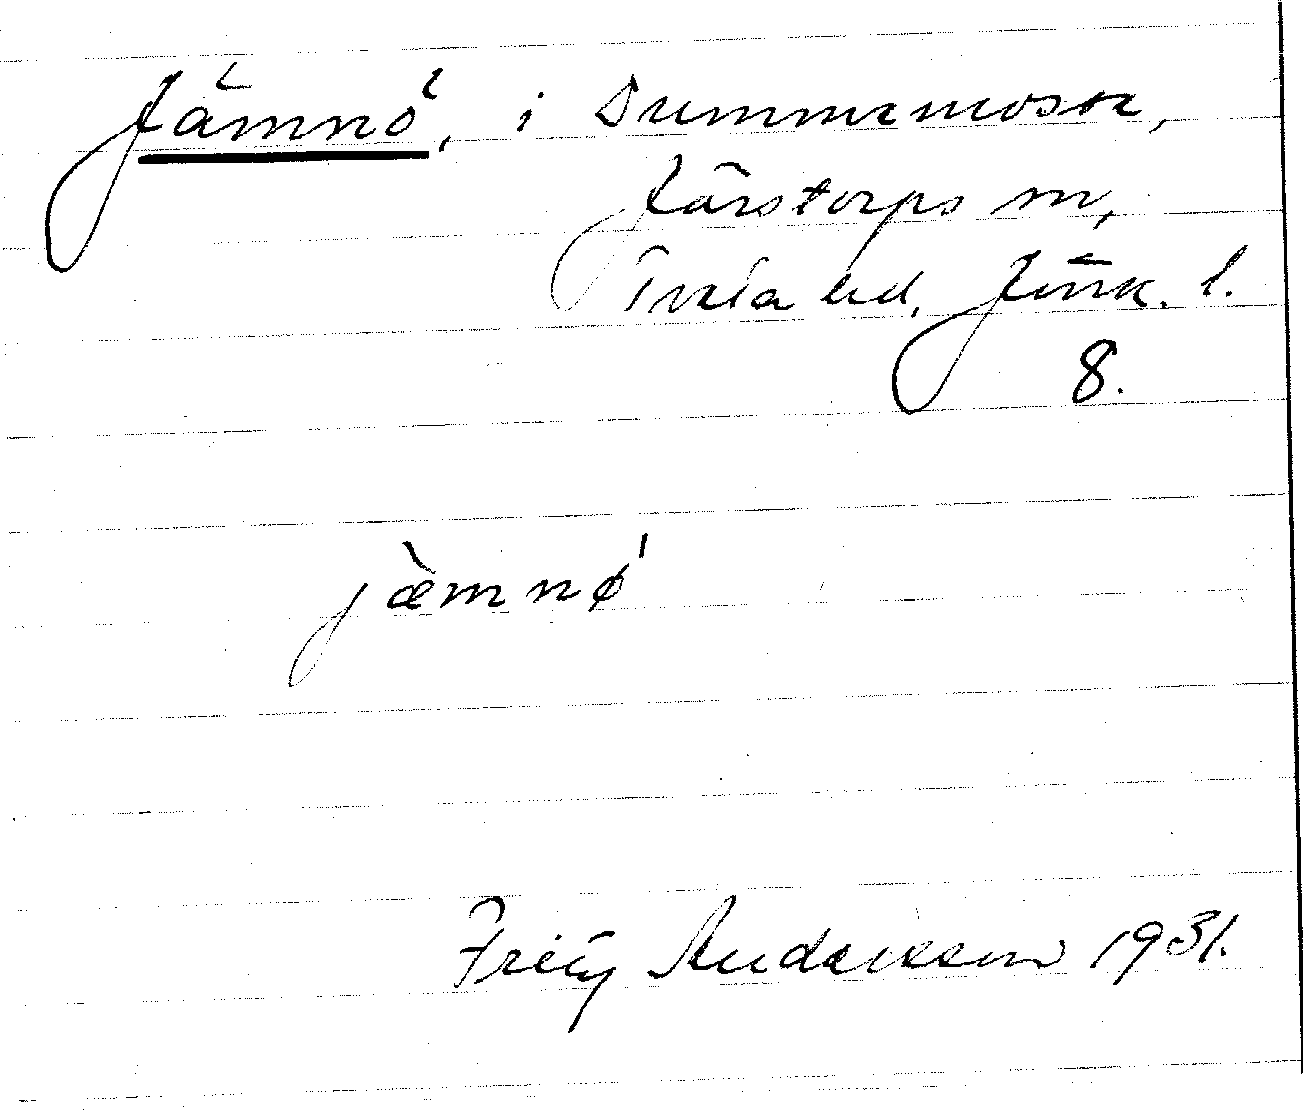 Jämnö, i Dummemosse,
Järstorps sn,
Tveta hd, Jönk. l.
8.
jæ̀mnǿ
Fritz Andersson 1931.